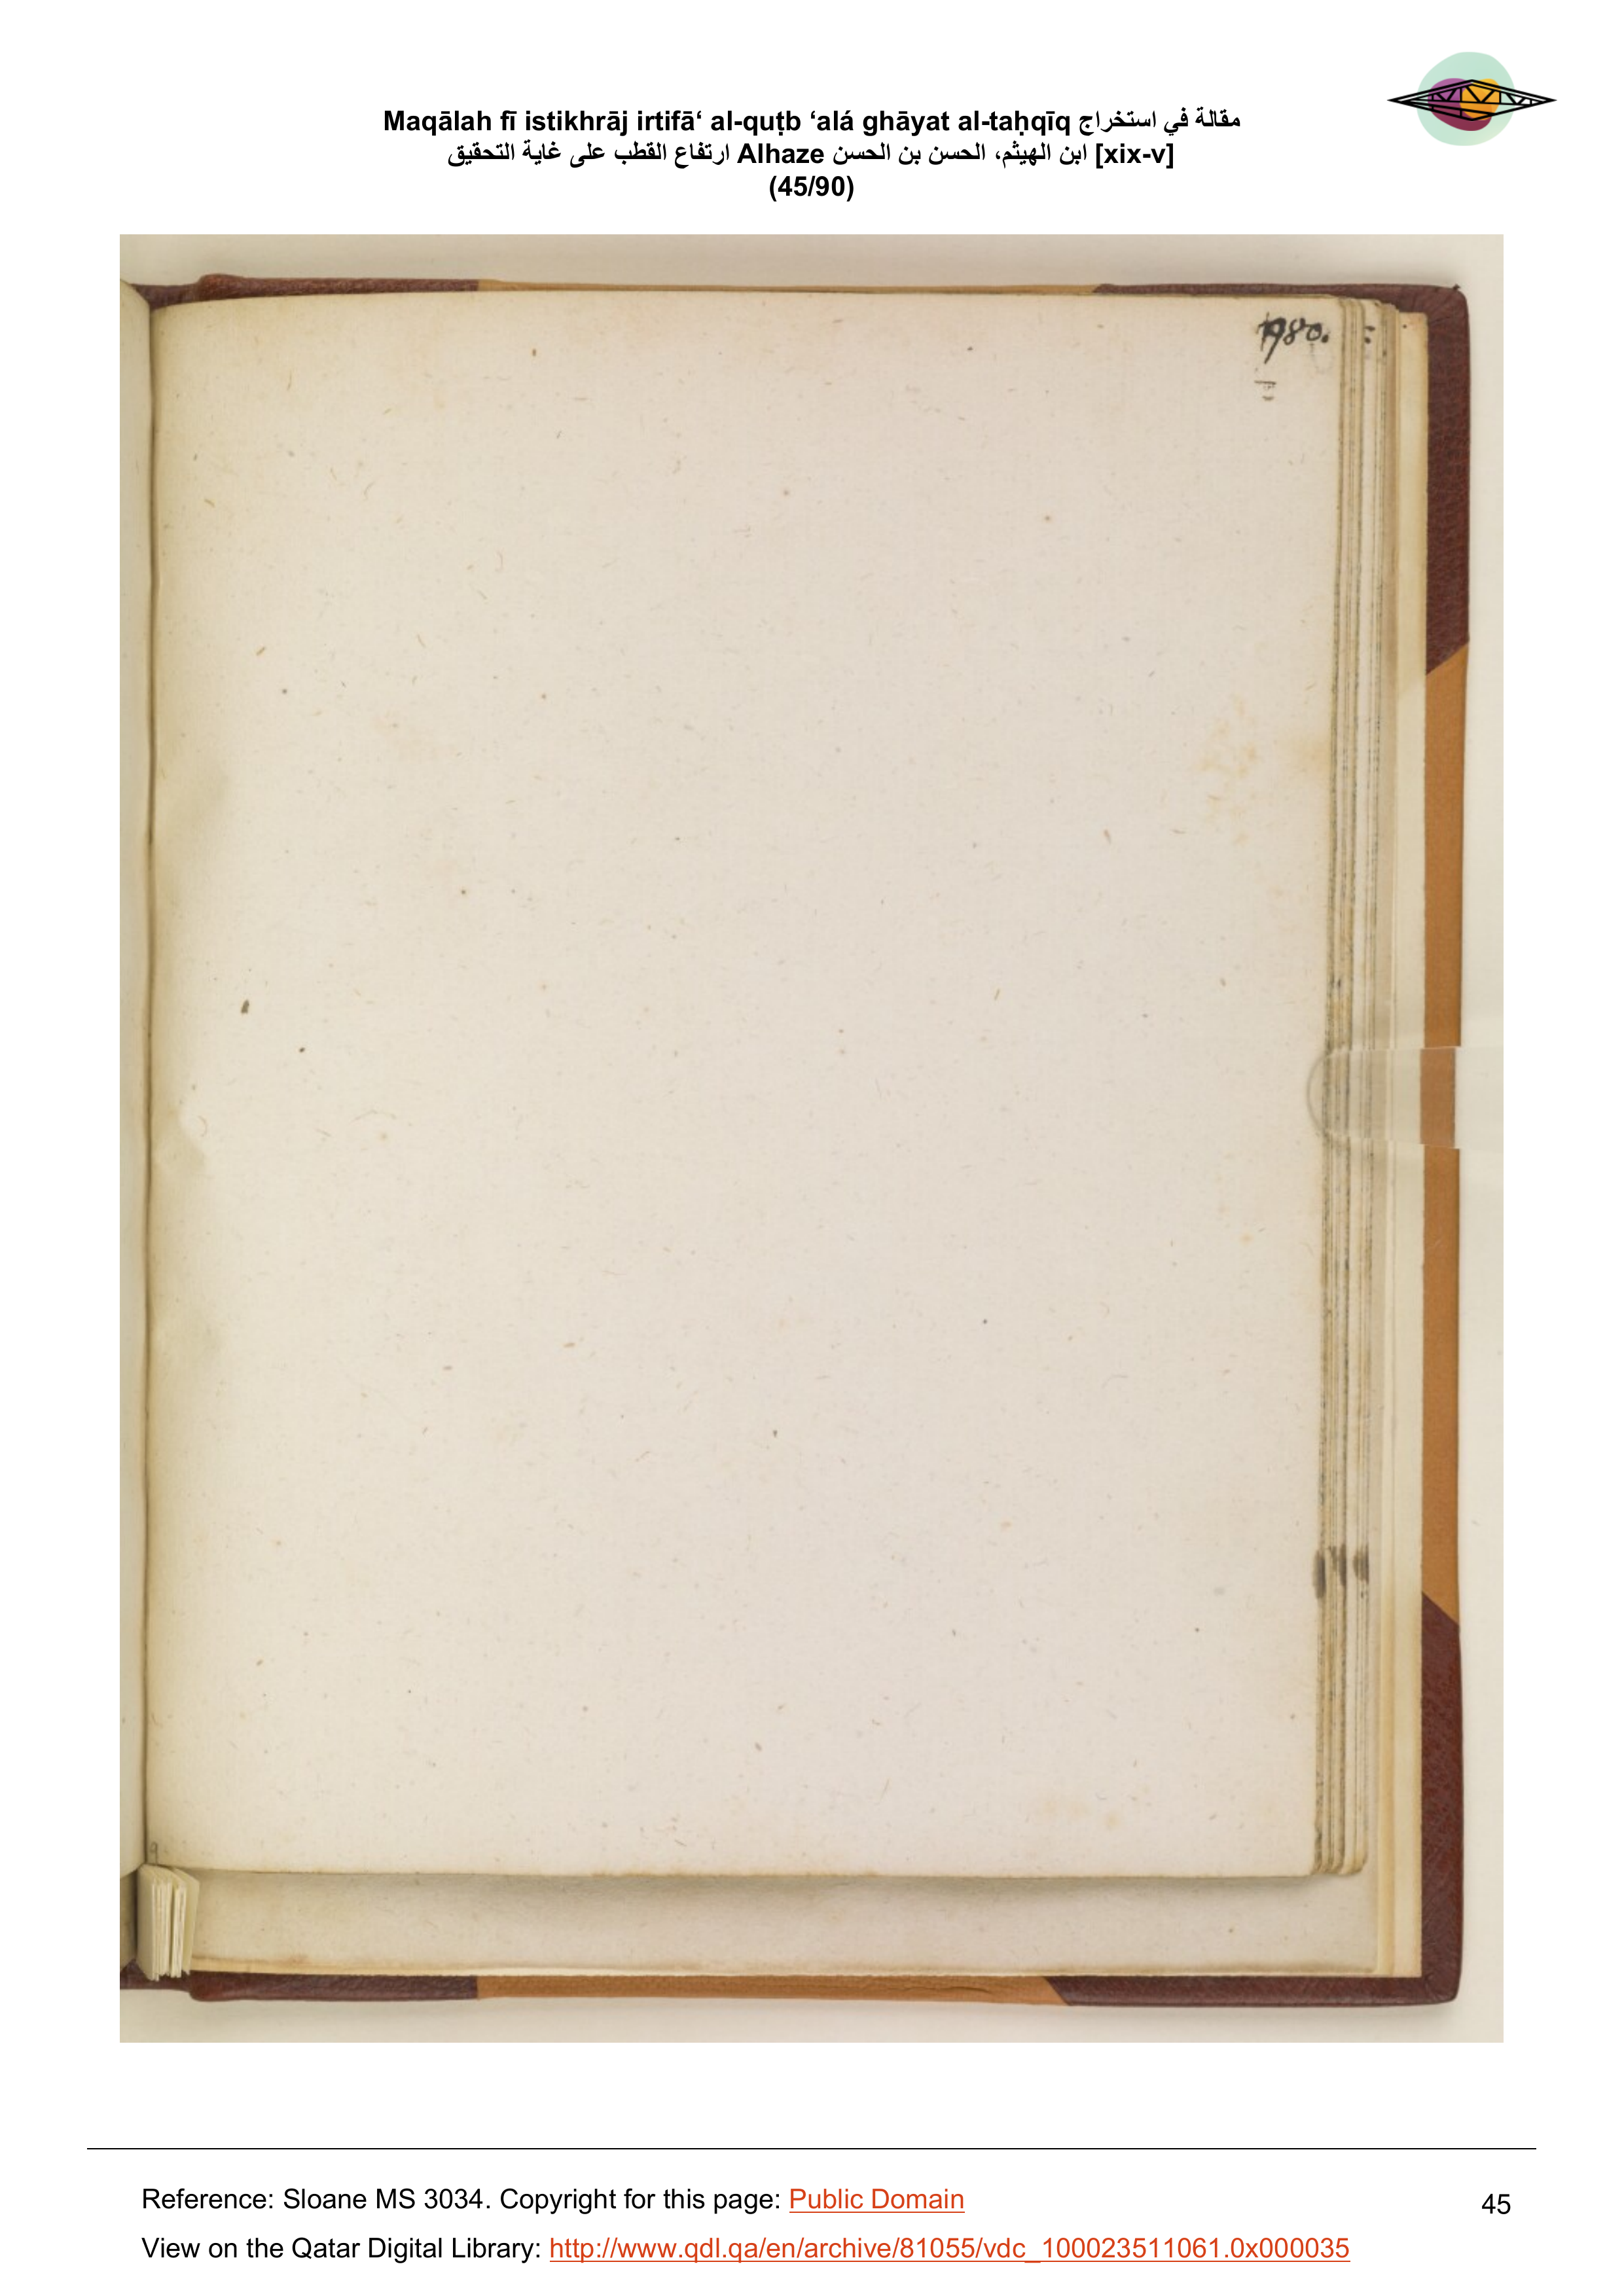 Maqālah fī istikhrāj irtifā‘ al-quṭb ‘alá ghāyat al-taḥqīq مقالة في استخراج
ارتفاع القطب على غاية التحقيق Alhaze ابن الهيثم، الحسن بن الحسن [xix-v]
(45/90)
1980.
Reference: Sloane MS 3034. Copyright for this page: Public Domain
45
View on the Qatar Digital Library: http://www.qdl.qa/en/archive/81055/vdc_100023511061.0x000035